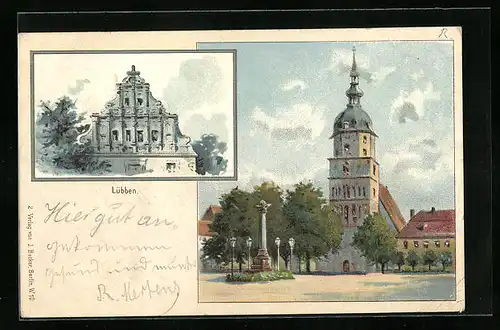 R
Lübben.
Hier gut an,
gekommen
gesund und munter
R. Mertens
2 Verlag von J. Becker, Berlin, W 10.